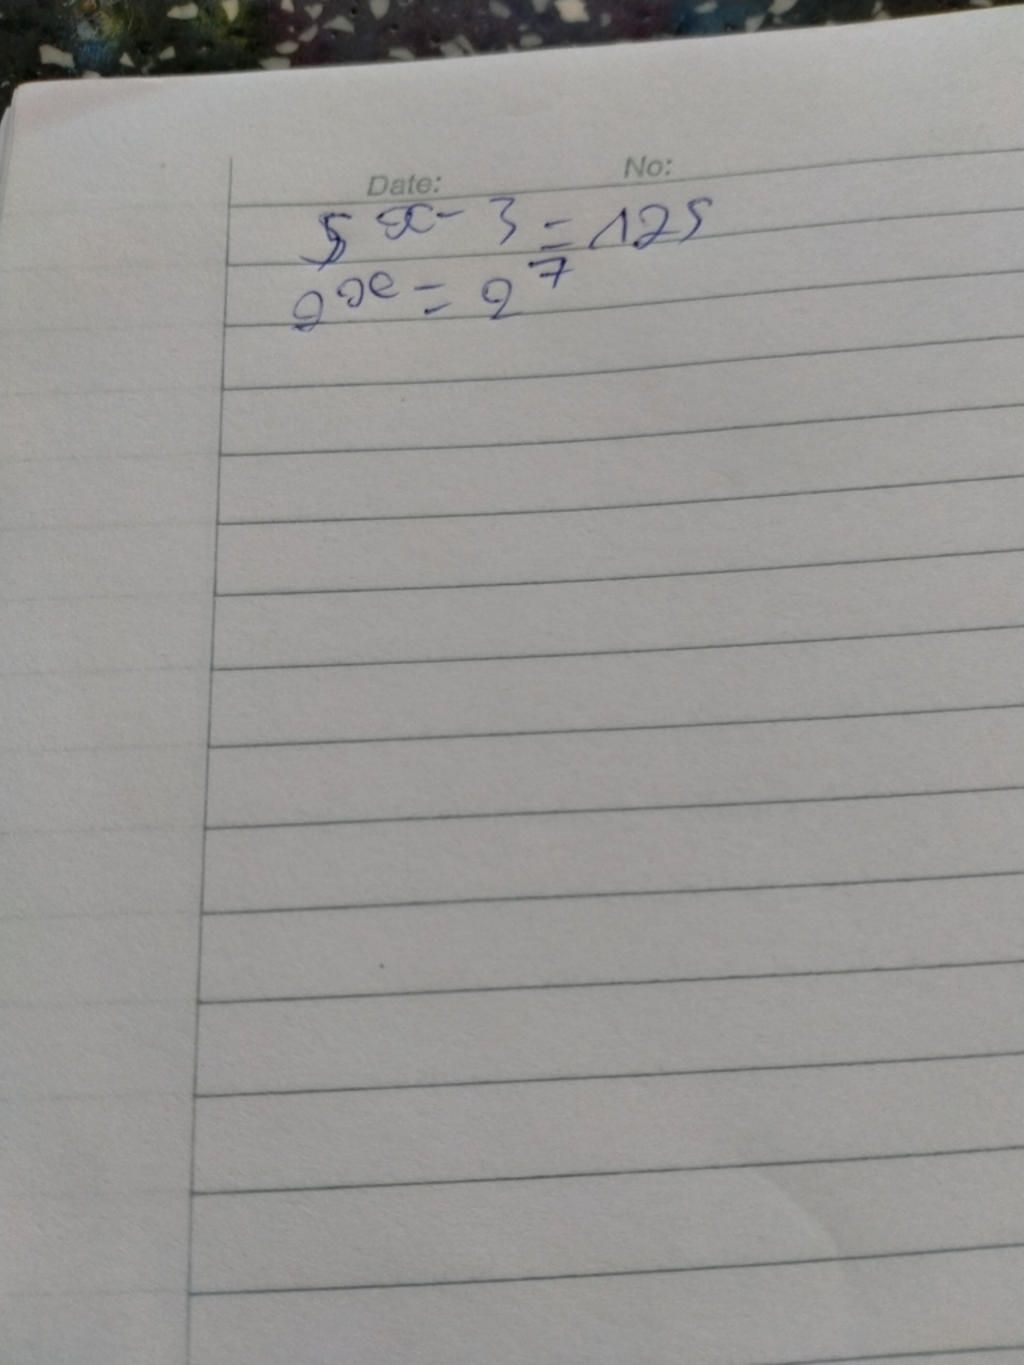 Date: No:
5^x-3 = 125
2^x = 2^7